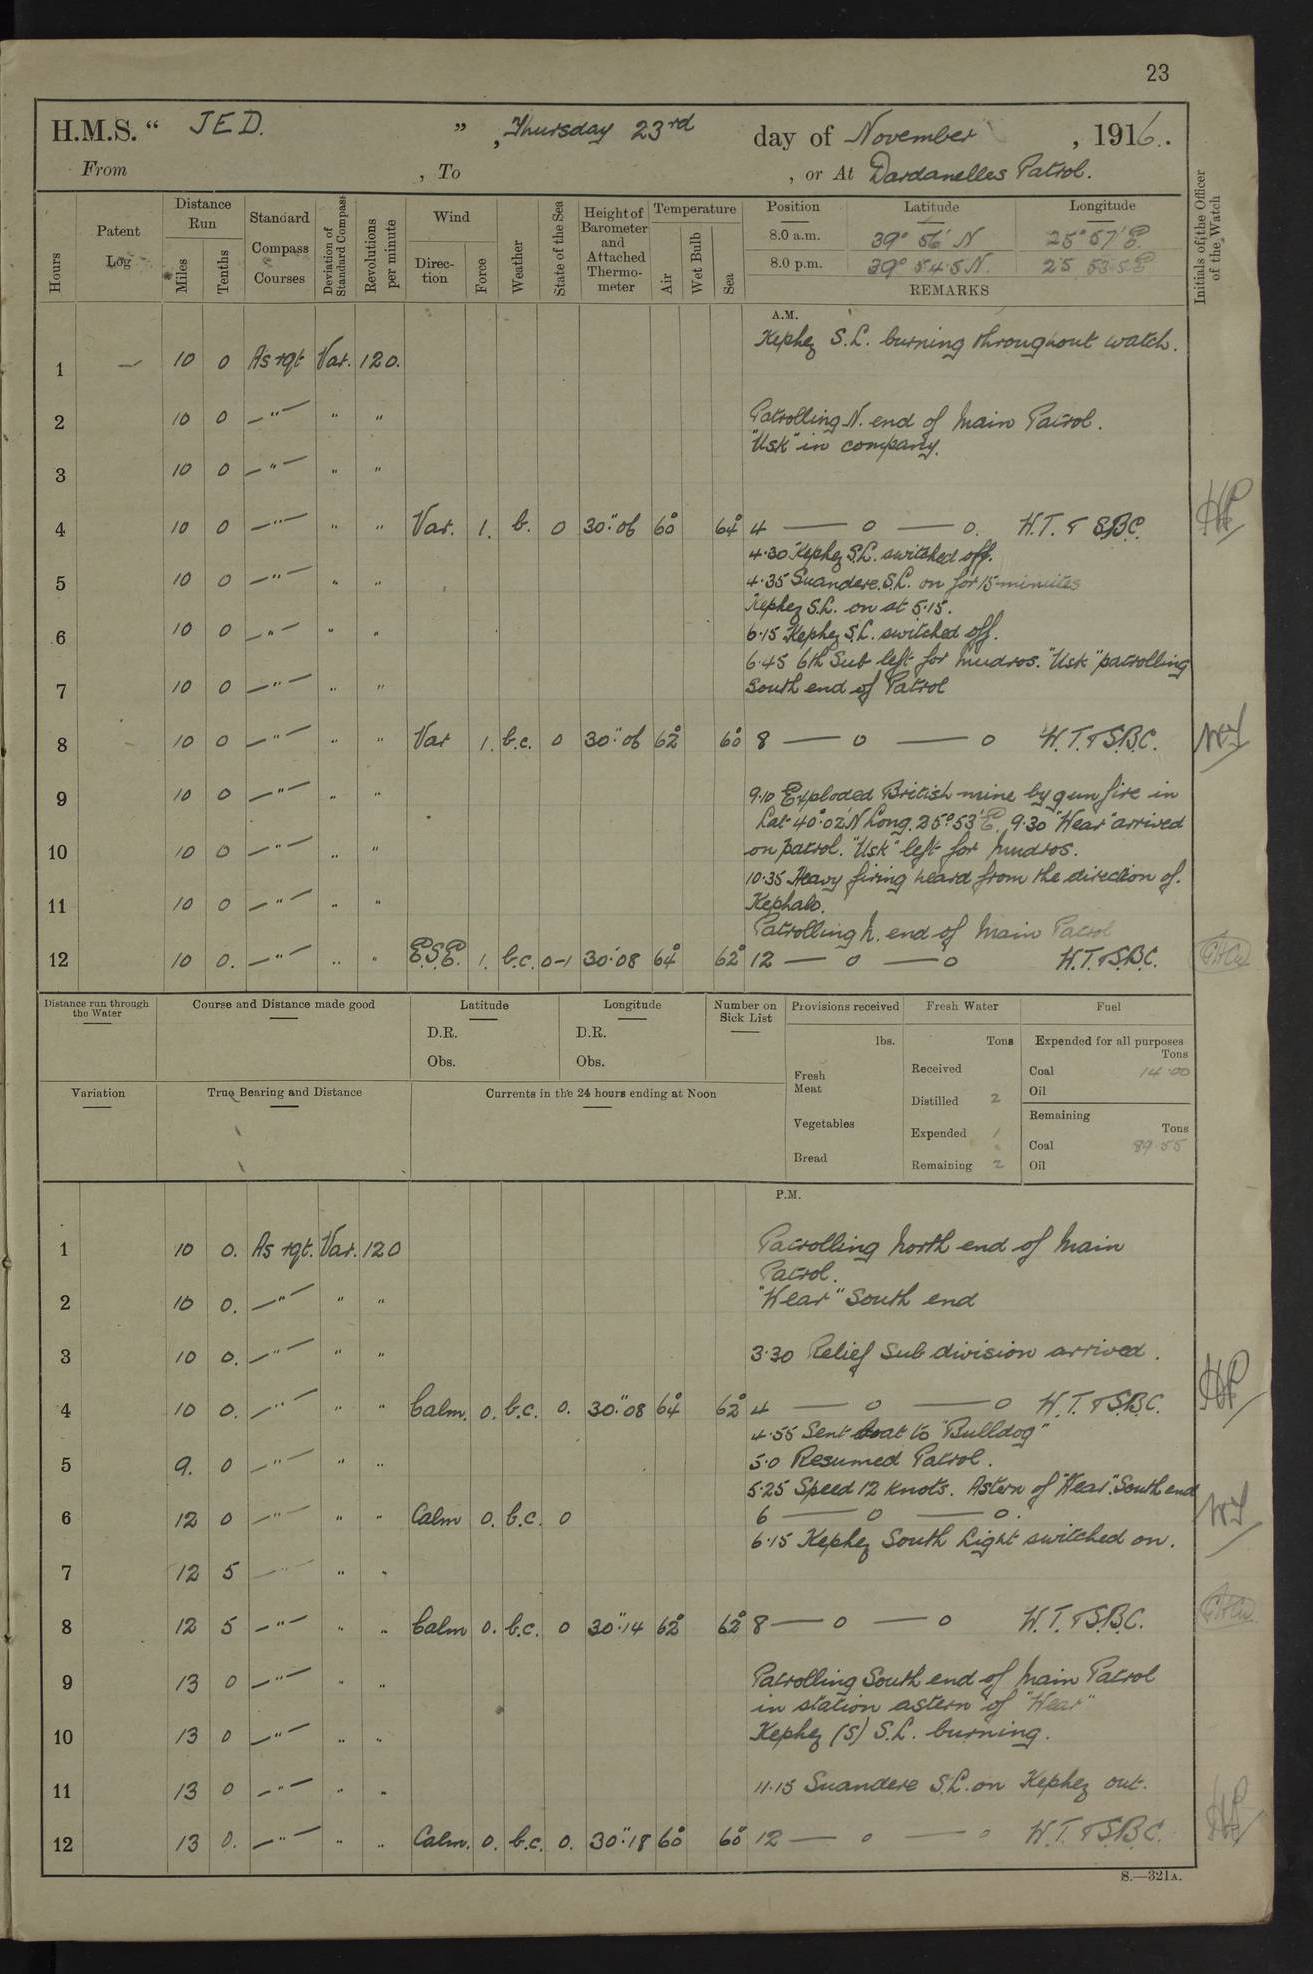 23
H.M.S. “ JED. ” , Thursday 23rd day of November , 1916.
From , To , or At Dardanelles Patrol.
Hours
Patent Log
Distance Run
Miles
Tenths
Standard Compass Courses
Deviation of Standard Compass
Revolutions per minute
Wind
Direction
Force
Weather
State of the Sea
Height of Barometer and Attached Thermometer
Temperature
Air
Wet Bulb
Sea
Position Latitude Longitude
8.0 a.m. 39° 56' N 25° 57' E
8.0 p.m. 39° 54.5 N. 25 53.5 E
REMARKS
Initials of the Officer of the Watch
A.M.
Kephez S.L. burning throughout watch.
1 — 10 0 As rqt Var. 120.
2 10 0 —"— " " Patrolling N. end of Main Patrol.
"Usk" in company.
3 10 0 —"— " "
4 10 0 —"— " " Var. 1. b. 0 30".06 60° 64° 4 — o — o. W.T. & S.B.C.
4.30 Kephez S.L. switched off.
5 10 0 —"— " " 4.35 Suandere. S.L. on for 15 minutes
Kephez S.L. on at 5.15.
6 10 0 —"— " " 6.15 Kephez S.L. switched off.
6.45 6th Sub left for Mudros. "Usk" patrolling
7 10 0 —"— " " South end of Patrol
8 10 0 —"— " " Var 1. b.c. 0 30".06 62° 60° 8 — o — o W.T. & S.B.C.
9 10 0 —"— " " 9.10 Exploded British mine by gun fire in
Lat 40°.02'N Long. 25°53'E. 9.30 "Wear" arrived
10 10 0 —"— " " on patrol. "Usk" left for Mudros.
10.35 Heavy firing heard from the direction of.
11 10 0 —"— " " Kephalo.
Patrolling N. end of Main Patrol
12 10 0. —"— " " E.S.E. 1. b.c. 0-1 30.08 64° 62° 12 — o — o W.T. & S.B.C.
Distance run through the Water
Course and Distance made good
Latitude
D.R.
Obs.
Longitude
D.R.
Obs.
Number on Sick List
Provisions received
lbs.
Fresh Meat
Vegetables
Bread
Fresh Water
Tons
Received
Distilled 2
Expended 1
Remaining 2
Fuel
Expended for all purposes
Tons
Coal 14.00
Oil
Remaining
Tons
Coal 89.55
Oil
Variation
True Bearing and Distance
Currents in the 24 hours ending at Noon
P.M.
1 10 0. As rqt. Var. 120 Patrolling North end of Main
Patrol.
2 10 0. —"— " " "Wear" South end
3 10 0. —"— " " 3.30 Relief Sub division arrived.
4 10 0. —"— " " Calm. 0. b.c. 0. 30".08 64° 62° 4 — o — o W.T. & S.B.C.
4.55 Sent boat to "Bulldog"
5 9. 0 —"— " " 5.0 Resumed Patrol.
5.25 Speed 12 knots. Astern of "Wear". South end
6 12 0 —"— " " Calm 0. b.c. 0 6 — o — o.
6.15 Kephez South Light switched on.
7 12 5 —"— " "
8 12 5 —"— " " Calm 0. b.c. 0 30".14 62° 62° 8 — o — o W.T. & S.B.C.
9 13 0 —"— " " Patrolling South end of Main Patrol
in station astern of "Wear"
10 13 0 —"— " " Kephez (S) S.L. burning.
11 13 0 —"— " " 11.15 Suandere S.L. on Kephez out.
12 13 0. —"— " " Calm. 0. b.c. 0. 30".18 60° 60° 12 — o — o W.T. & S.B.C.
S.—321A.